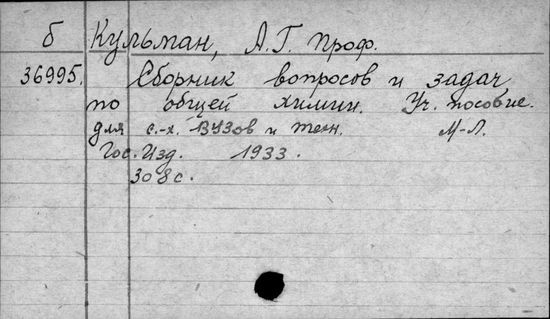 б Кульман, А.Г. проф.
36995. Сборник вопросов и задач
по общей химии. Уч. пособие.
для с.-х. ВУЗов и техн. М-Л.
Гос. Изд. 1933.
308 с.